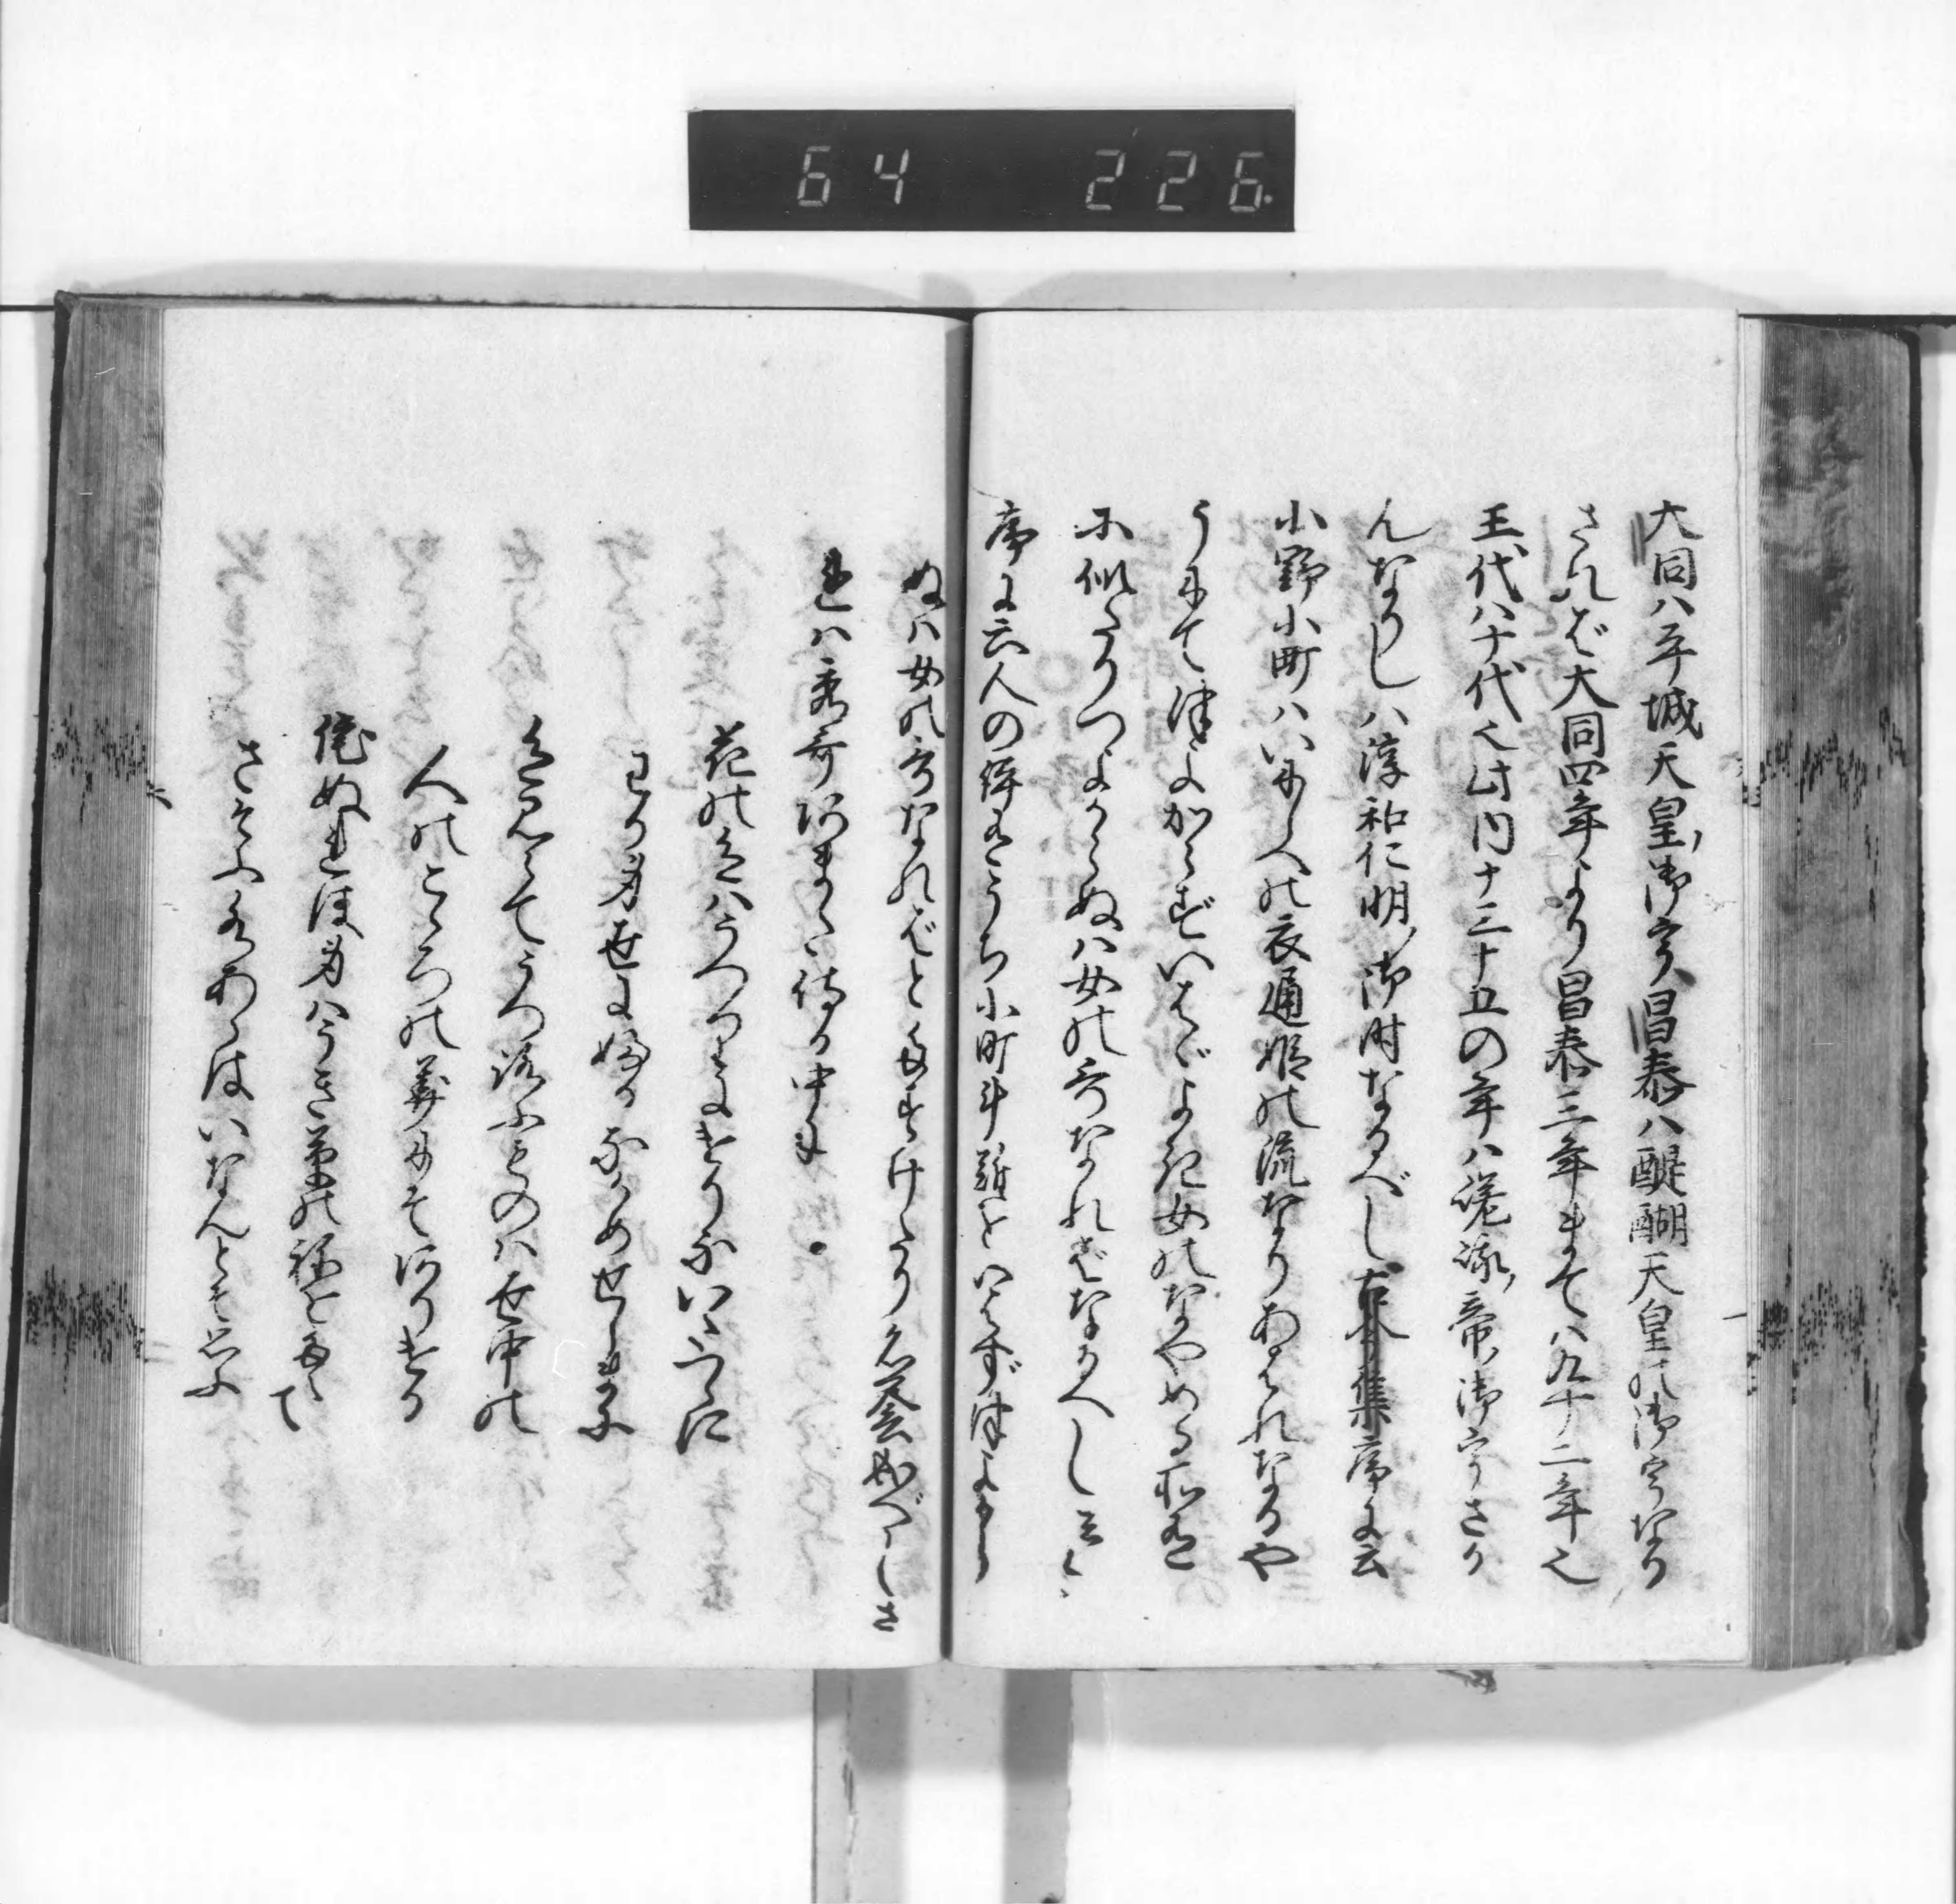 64 226
大同ハ平城天皇ノ御宇昌泰ハ醍醐天皇の御宇なり
されバ大同四年より昌泰三年まてハ九十二年也
王代ハ十代也此内十三十五の年ハ嵯峨ノ帝ノ御宇さか
んなりしハ淳和仁明ノ御時なるべし古今集序に云
小野小町ハいにしへの衣通姫の流なりあはれなるや
うにて津よからずいはゞよき女のなやめる所有
に似たりつよからぬハ女の哥なれバなるへしと云々
序に六人の評有うち小町斗難といはずつよから
ぬハ女の哥なれバとたすけたり
れハ秀哥あまた侍る中に
花の色ハうつりにけりないたつらに
わか身世にふるなかめせしまに
色見えてうつろふものハ世中の
人のこゝろの花にそありける
侘ぬれは身ハうき草の根をたえて
さそふ水あらはいなんとそ思ふ